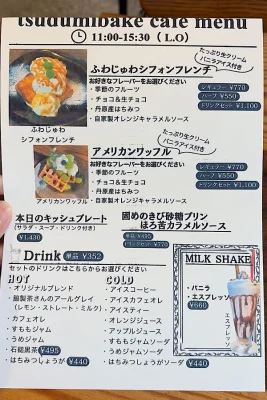 tsudumibake cafe menu
11:00-15:30 (L.O)
たっぷり生クリーム
バニラアイス付き
ふわじゅわシフォンフレンチ
お好きなフレーバーをお選びください
・季節のフルーツ
・チョコ&生チョコ
・丹原産はちみつ
・自家製オレンジキャラメルソース
レギュラー ¥770
ハーフ ¥550
ドリンクセット ¥1,100
ふわじゅわ
シフォンフレンチ
たっぷり生クリーム
バニラアイス付き
アメリカンワッフル
お好きなフレーバーをお選びください
・季節のフルーツ
・チョコ&生チョコ
・丹原産はちみつ
・自家製オレンジキャラメルソース
レギュラー ¥770
ハーフ ¥550
ドリンクセット ¥1,100
アメリカンワッフル
本日のキッシュプレート
(サラダ・スープ・ドリンク付き)
¥1,430
固めのきび砂糖プリン
ほろ苦カラメルソース
単品 ¥495
ドリンクセット ¥770
Drink 単品 ¥352
セットのドリンクはこちらからお選びください
HOT
・オリジナルブレンド
・藤製茶さんのアールグレイ
(レモン・ストレート・ミルク)
・カフェオレ
・すももジャム
・うめジャム
・石鎚黒茶 ¥495
・はちみつしょうが ¥440
COLD
・アイスコーヒー
・アイスカフェオレ
・アイスティー
・オレンジジュース
・アップルジュース
・すももジャムソーダ
・うめジャムソーダ
・はちみつしょうがソーダ ¥440
MILK SHAKE
・バニラ
・エスプレッソ
¥660
エスプレッソ